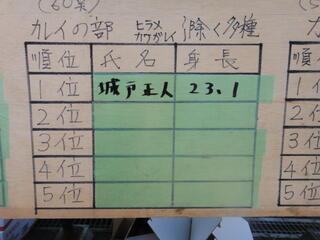 カレイの部 ヒラメ カワガレイ 除く多種
順位 氏名 身長
1位 城戸正人 23.1
2位
3位
4位
5位
1位
2位
3位
4位
5位